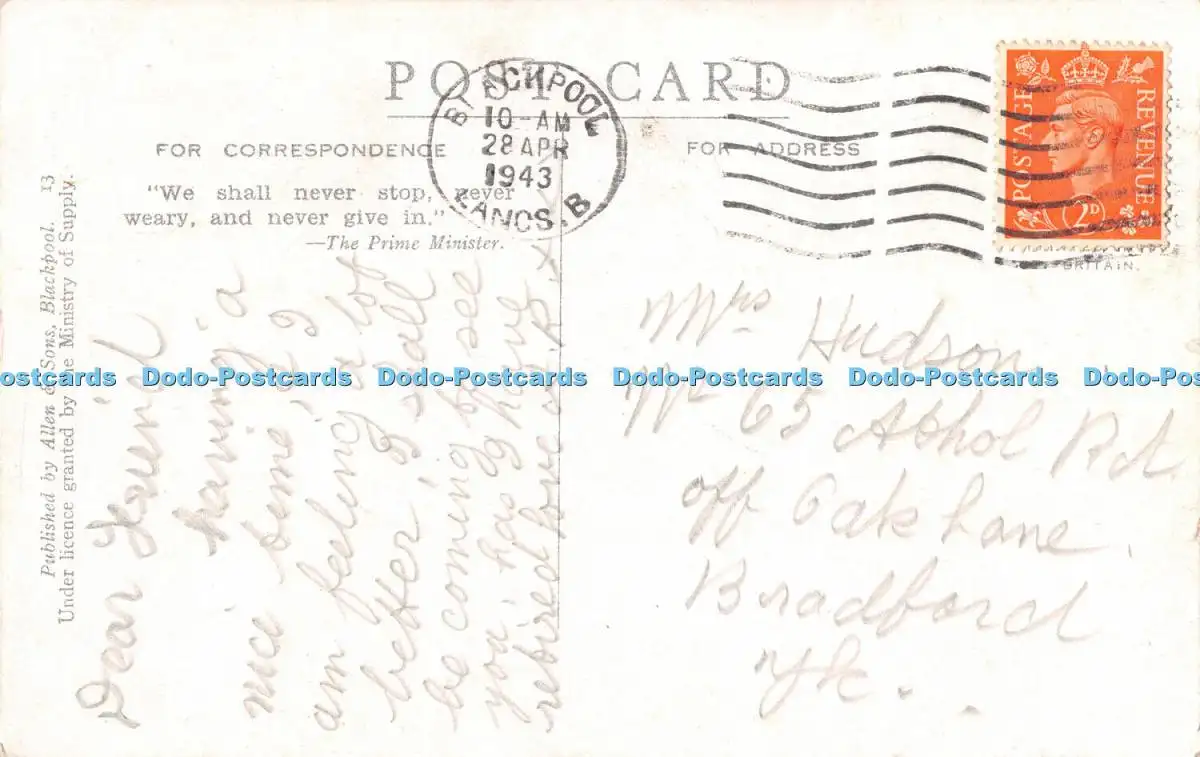 POST CARD
BLACKPOOL
10-AM
28 APR
1943
LANCS. B
FOR CORRESPONDENCE
FOR ADDRESS
"We shall never stop, never
weary, and never give in."
—The Prime Minister.
POSTAGE
REVENUE
2D
BRITAIN.
Published by Allen & Sons, Blackpool. 13
Under licence granted by the Ministry of Supply.
Dear
having a
nice time I
am feeling a lot
better I shall
be coming to see
you has I have
love
Mrs Hudson
65 Athol Rd
off Oak Lane
Bradford
Yk.
Dodo-Postcards Dodo-Postcards Dodo-Postcards Dodo-Postcards